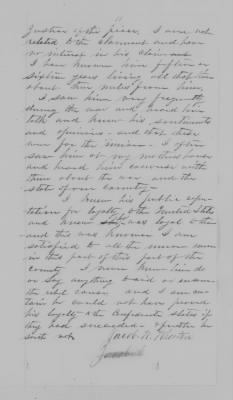 Justice of the Peace. I am not
related to the claimant and have
no interest in his claim.
I have known him fifteen or
sixteen years living all that time
about three miles from him,
I saw him very frequently
during the war and heard him
talk and knew his sentiments
and opinions - and that these
were for the Union. I often
saw him at my own house
and heard him converse with
them about the war and the
state of our country.
I knew his public repu-
tation for loyalty to the United States
and know that was loyal
and this was known I am
satisfied to all the union men
in this part of this part of the
county I never knew him do
or say anything to aid or
the rebel cause and I am cer-
tain he could not have proved
his loyalty to the Confederate States if
they had succeeded - further he
saith not.
Jacob